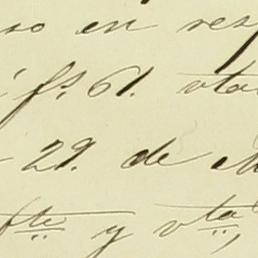 so en resp
fs. 61. vta
29. de M
fte y vta,